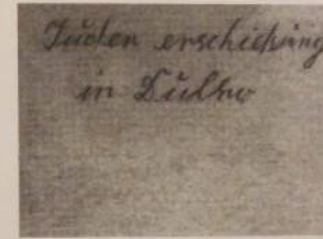 Juden erschießung
in Dubno